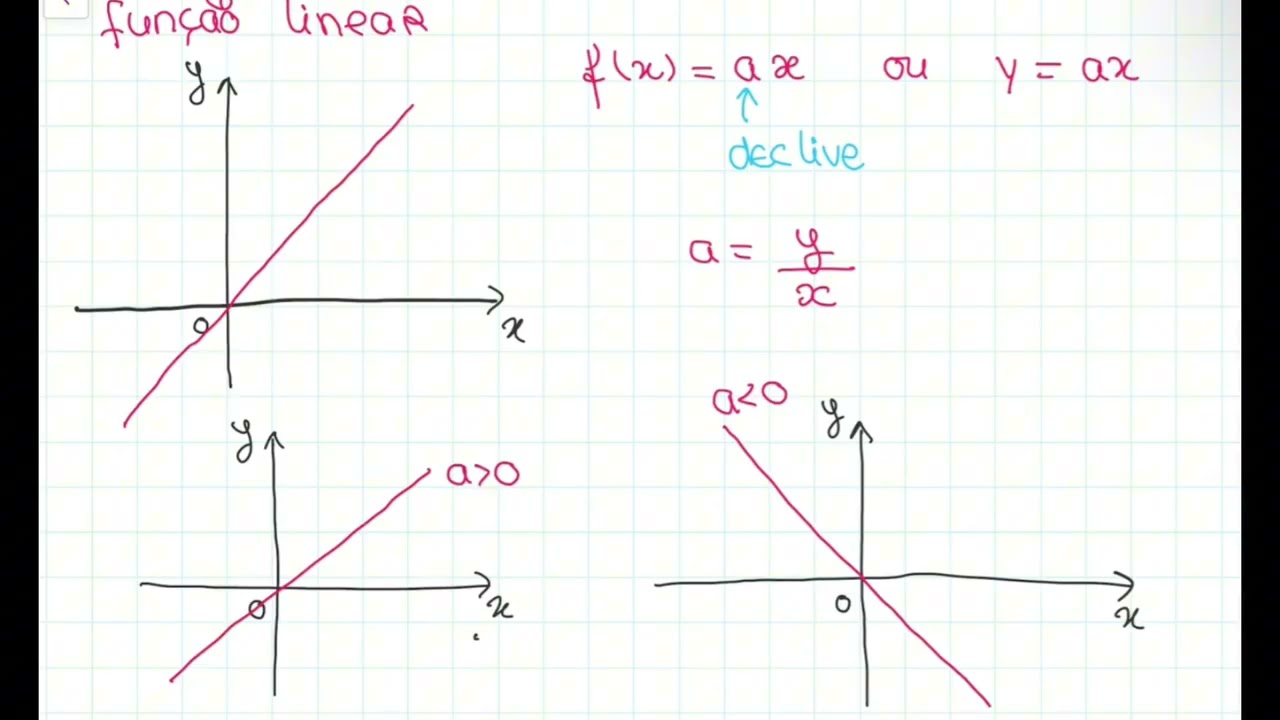 função linear
f(x) = ax ou y = ax
declive
a = y/x
y
x
0
a>0
y
x
0
a<0
y
x
0